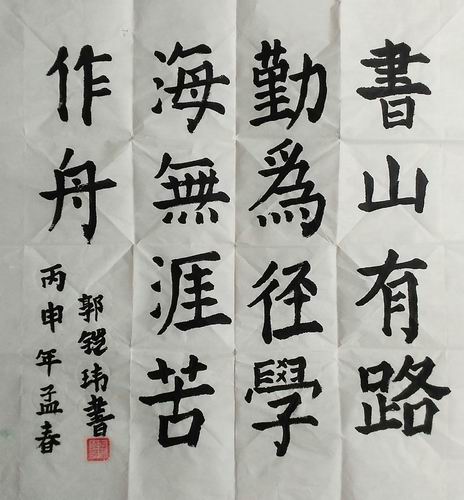 書山有路
勤為径學
海無涯苦
作舟
丙申年孟春
郭鎧瑋書